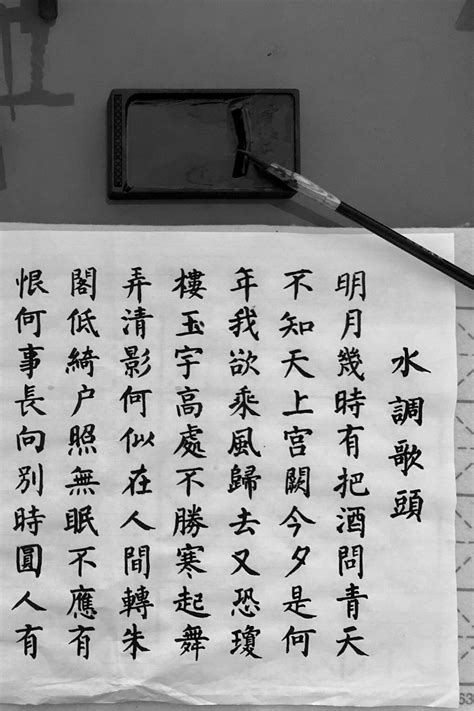 水調歌頭
明月幾時有把酒問青天
不知天上宮闕今夕是何
年我欲乘風歸去又恐瓊
樓玉宇高處不勝寒起舞
弄清影何似在人間轉朱
閣低綺户照無眠不應有
恨何事長向別時圓人有
63